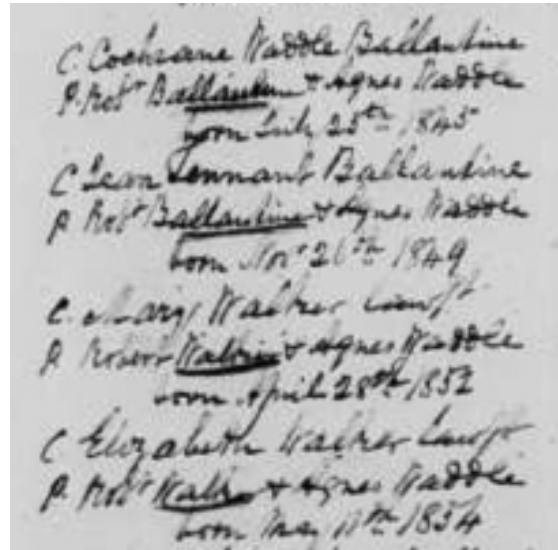 C. Cochrane Waddle Ballantine
P. Robt Ballantine & Agnes Waddle
born July 25th 1845
C Jean Tennant Ballantine
P Robt Ballantine & Agnes Waddle
born Novr 26th 1849
C. Mary Walker
P. Robert Walker & Agnes Waddle
born April 28th 1852
C Elizabeth Walker
P. Robt Walker & Agnes Waddle
born May 11th 1854